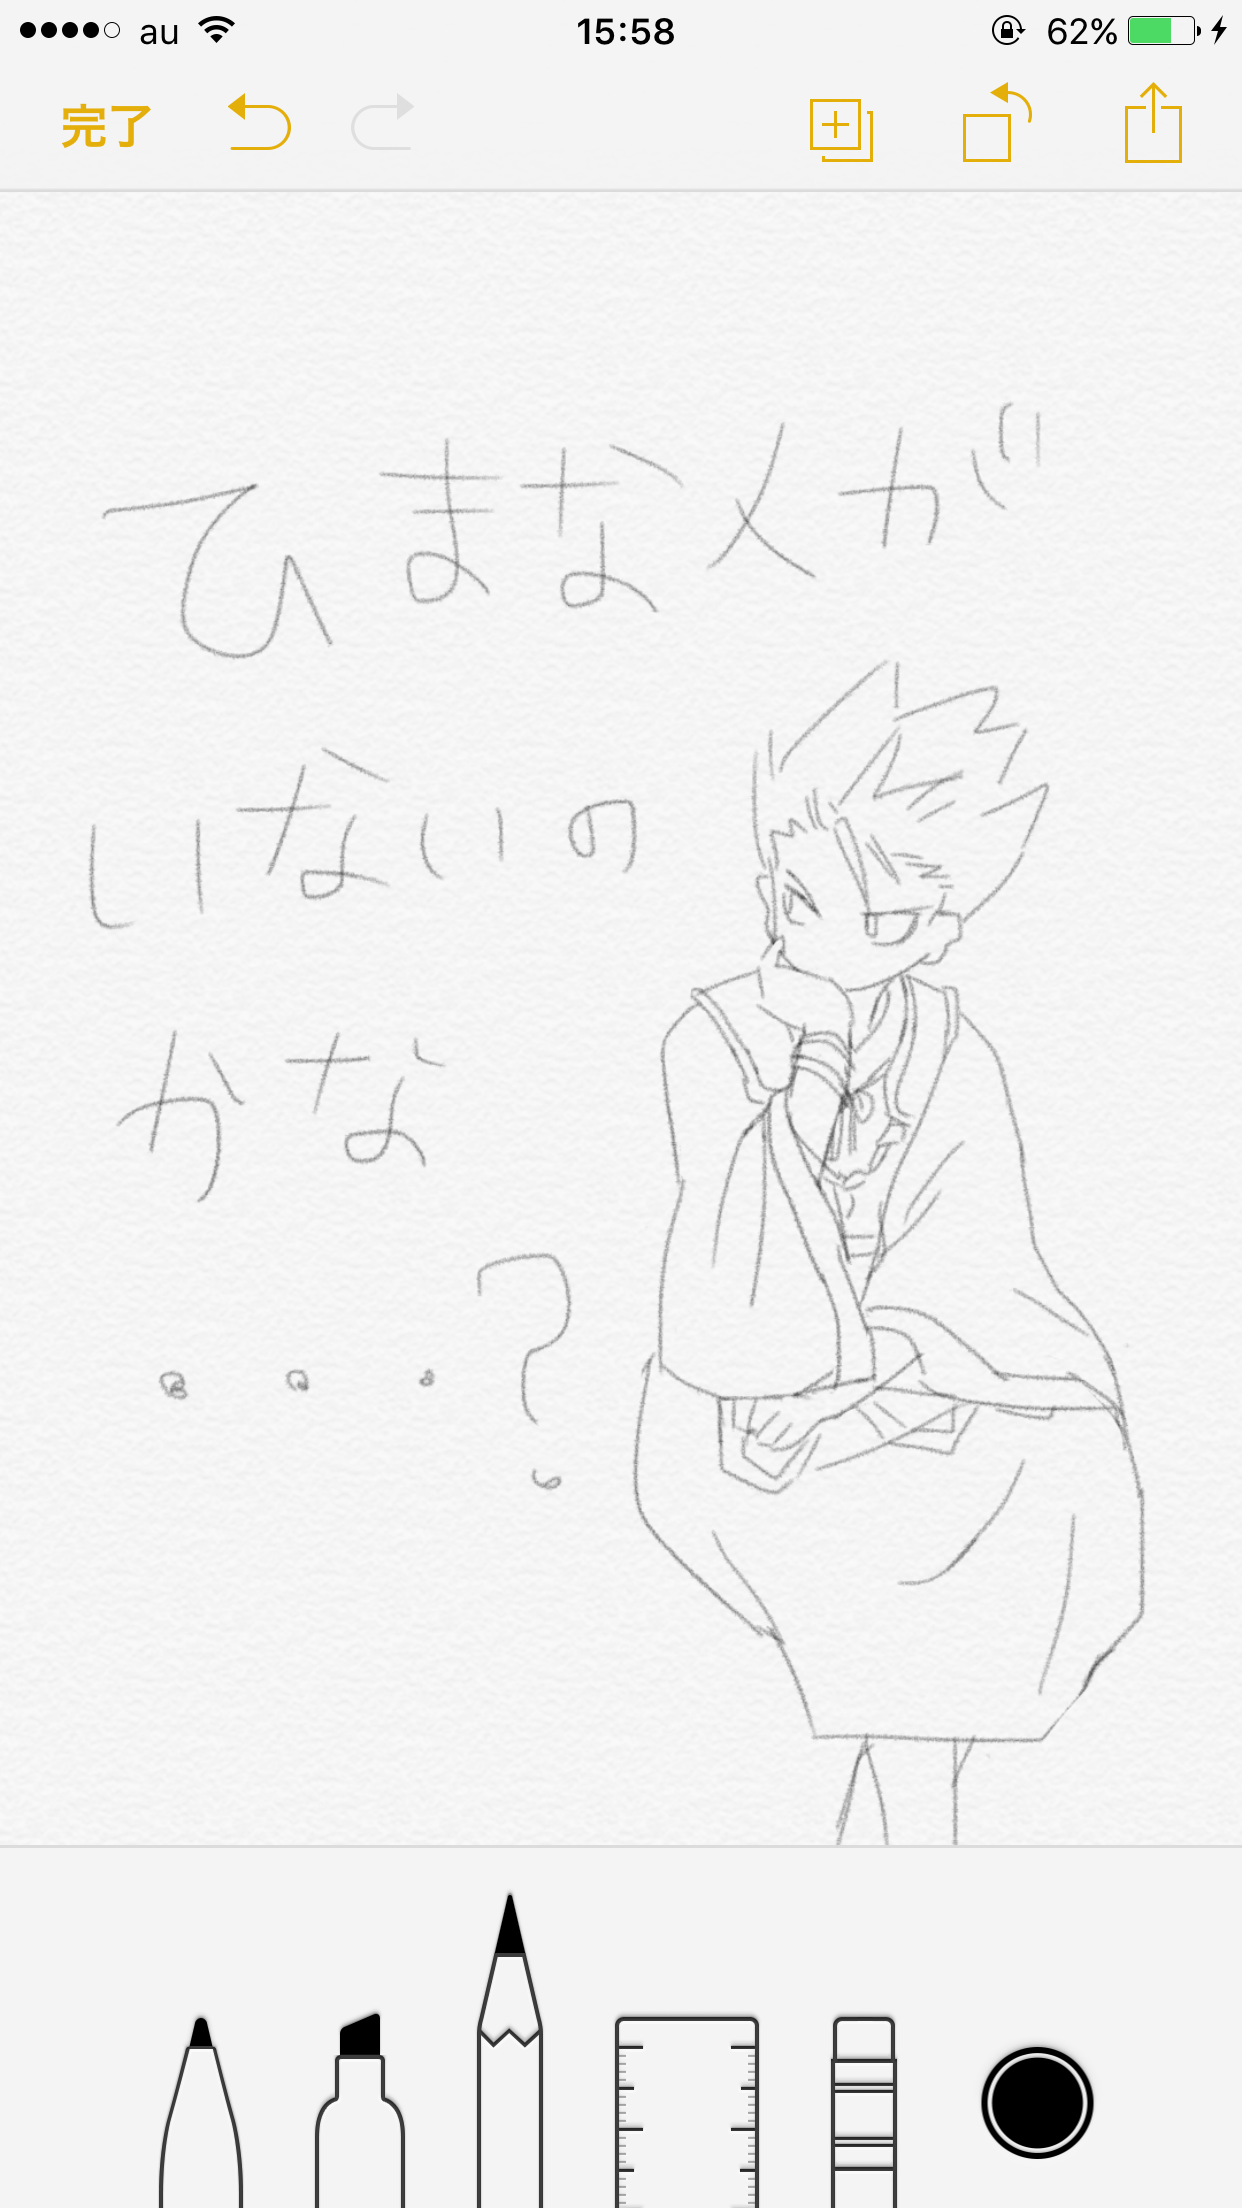 au 15:58 62%
完了
ひまなメが
いないの
かな
・・・?